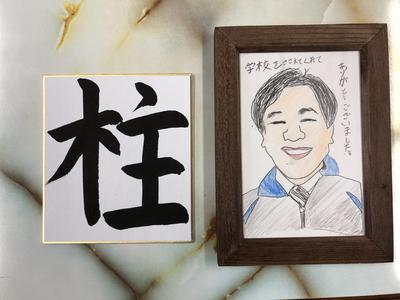 柱
学校をささえてくれて
ありがとうございました。